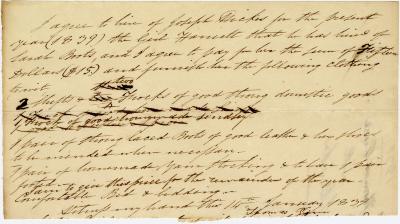 I agree to hire of Joseph Dickes for the present
year (1839) the Girl Fansett that he has hired of
Sarah Boots, and I agree to pay for her the sum of Fifteen
Dollars ($15) and furnish her the following clothing
towit
2 Shifts & two Frocks of good strong domestic goods
1 of good homemade Lindsey
1 pair of strong laced Boots of good leather & her shoes
to be mended when necessary.
1 pair of homemade yarn Stockings & to have 1 pair
for the remainder of the year
Comfortable Bed & bedding.
my hand the 15th January 1839
Thomas